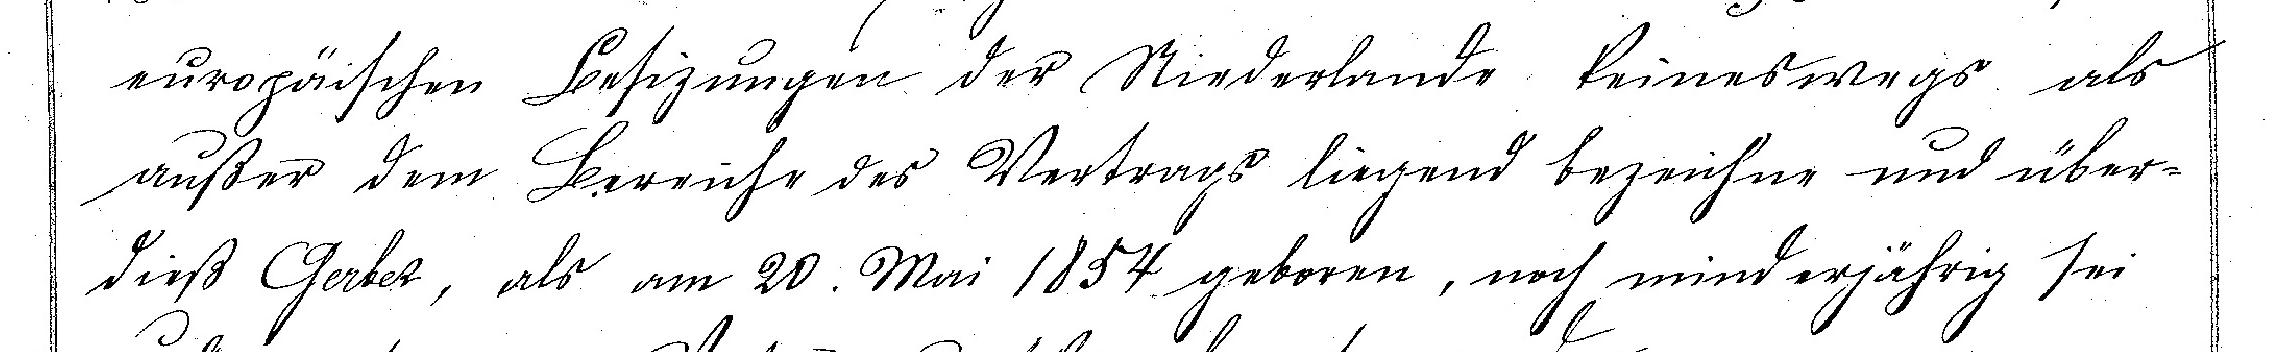 europäischen Besizungen der Niederlande keineswegs als
außer dem Bereiche des Vertrags liegend bezeichne und über-
dieß Gerber, als am 20. Mai 1854 geboren, noch minderjährig sei